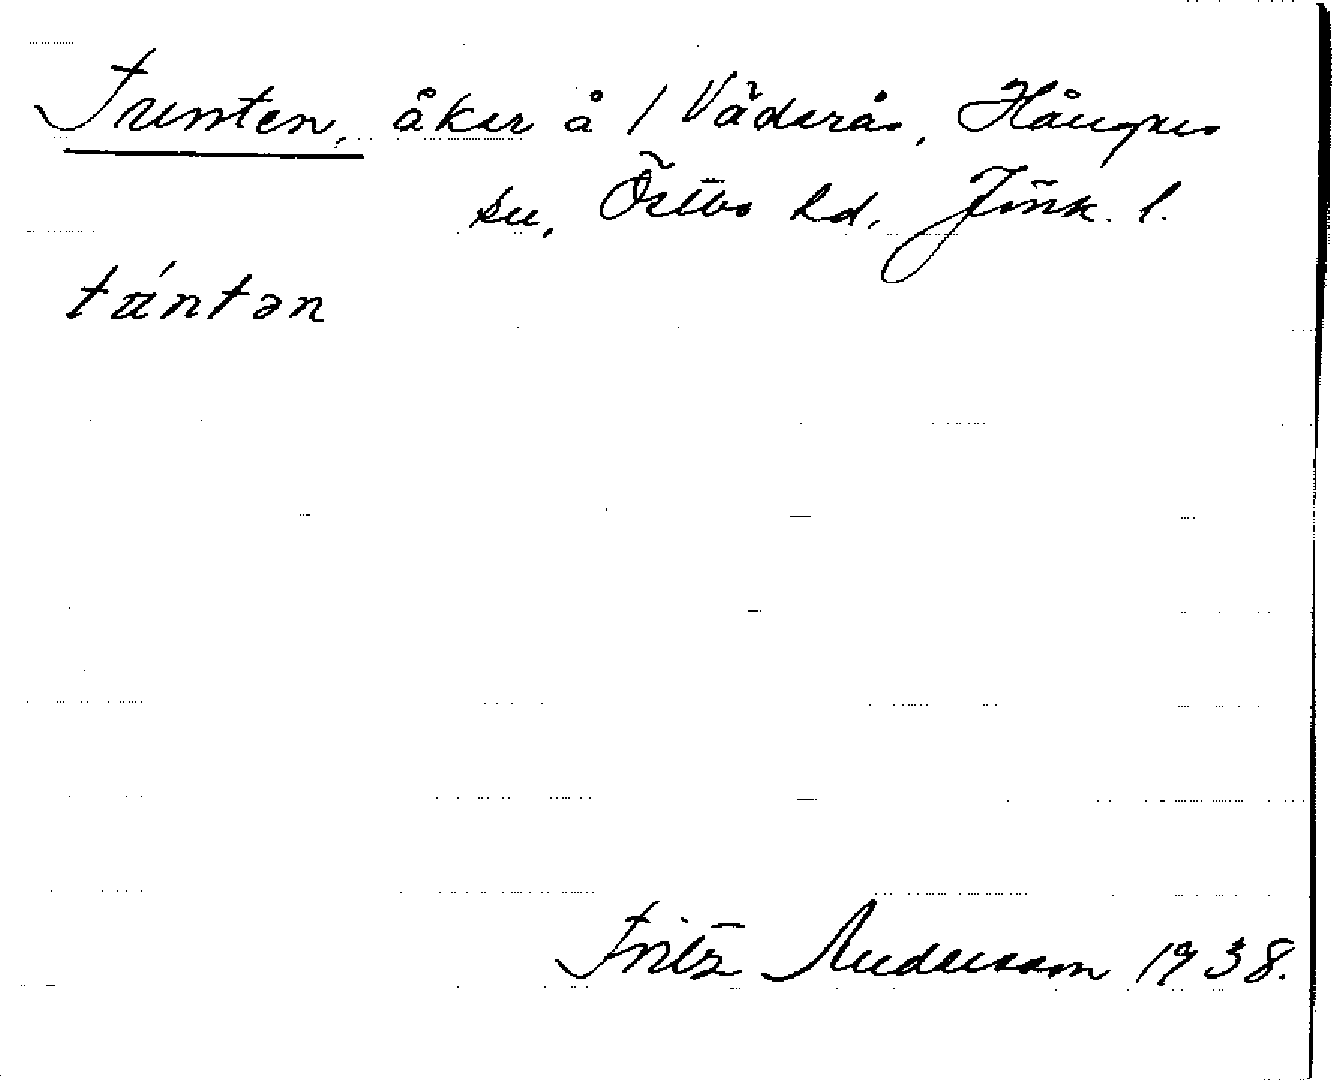 Trunten, åker å 1 Väderås, Hångers
sn, Östbo hd, Jönk. l.
túntən
Fritz Andersson 1938.